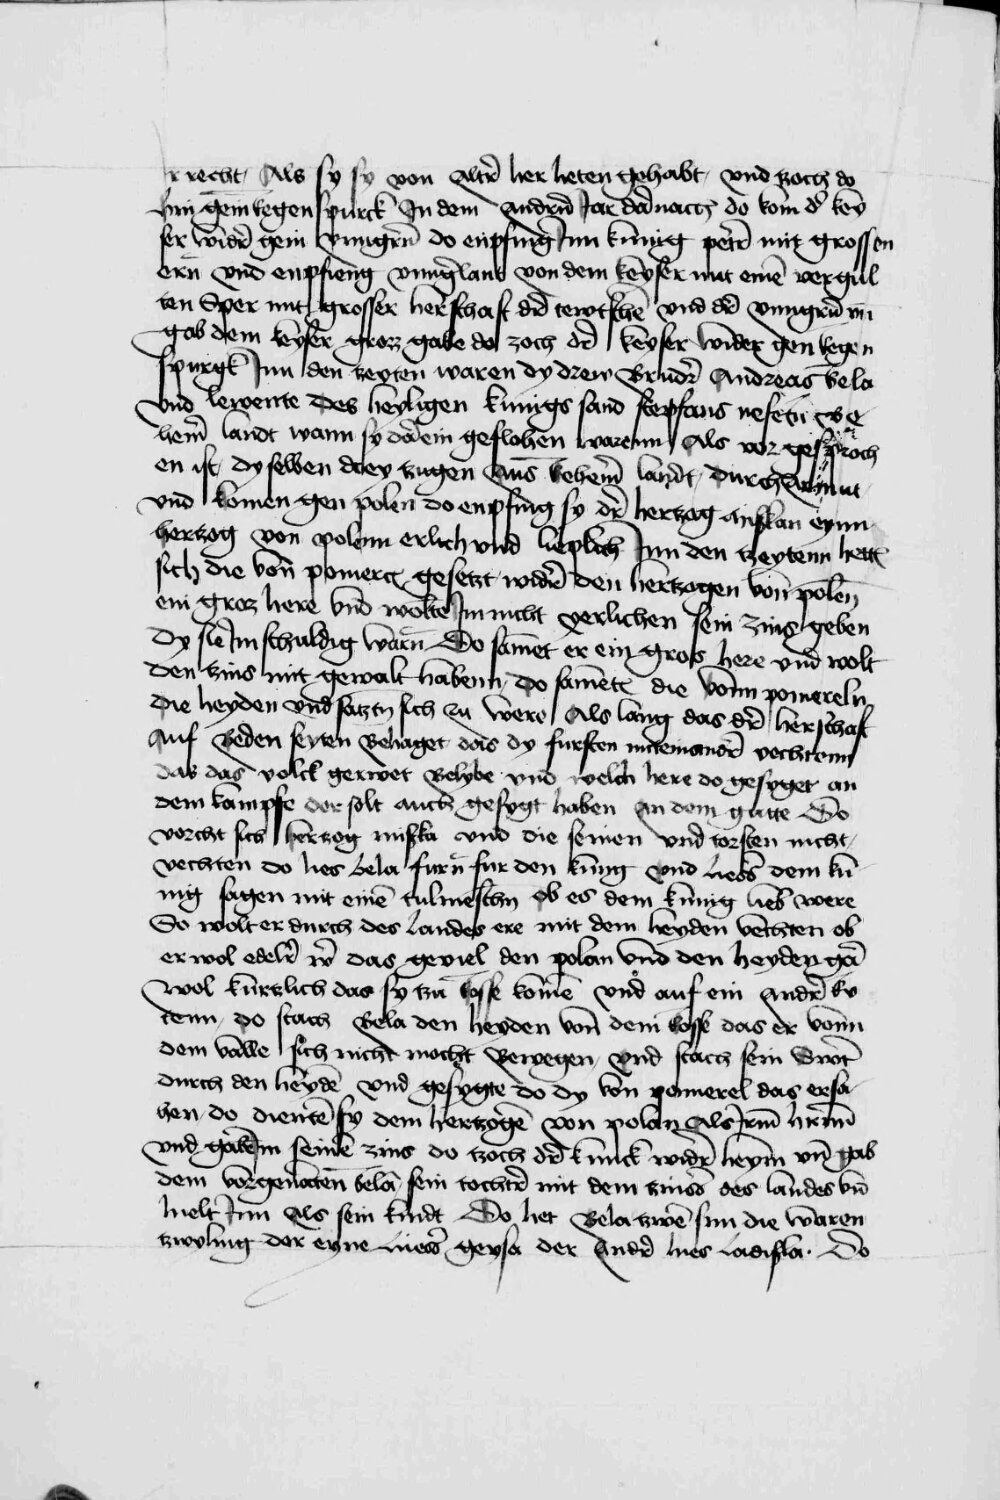 r recht Als sy sy von altr̄ her heten gehabt und zoch do
hin gein Regenspurck In dem Andern̄ Jar dar̄nach do kom dr̄ key
ser widr̄ gein vnngern̄ do enpfing Inn kunig petr̄ mit grossen
ern̄ vnd enpfieng vnngerlant von dem keyser mit einē vergul
ten Sper mit grosser herschaft dr̄ tewtschē vnd dr̄ vnngern̄ vn̄
gab dem keyser gross gabe do zoch dr̄ keyser wider gen Regen
spurgk Inn den zeyten waren dy drew Brudr̄ Andreas Bela
vnd lewente des heyligen kunigs sand stephans nefen Be
hem̄ landt wann sy dar ein geflohen warenn Als vor gesproch
en ist dyselben drey zugen aus behem̄ landt durch armut
vnd komen gen polen do enpfing sy dr̄ hertzog misslan eynn
hertzog von polenn erlich vnd lieplich Inn den zeytenn hett
sich die von̄ pomern gesetzt widr̄ den hertzogen von̄ polen̄
ein gros here vnd wolte Im nicht erlichen sein zins geben
dy sie Im schuldig warn̄ Do samet er ein gros here vnd wolt
den zins mit gewalt habenn do samēte die vonn pomereln
die heyden vnd saztn̄ sich zu were Als lang das dr̄ herschaft
Auf beden seyten behaget das dy fursten miteinandr̄ vechtenn
das das volck gerwet belybe vnd welch here do gesyget an
dem kampfe der solt auch gesygt haben an dem gute Do
vorcht sich hertzog miska vnd die seinen vnd torsten nicht
vechten do lies bela furn̄ fur den kunig vnd liess dem ku
nig sagen mit einē tulmeschn̄ ob es dem kunig lieb were
So wolt er durch des landes ere mit dem heyden vechten ob
er wol edelr̄ wr̄ das geviel den polan vnd den heyden gar̄
wol kurtzlich das sy zu Rosse komē vnd auf ein andr̄ Ru
tenn do stach Bela den heyden von dem Rosse das er vonn
dem valle sich nicht mocht bewegen vnd stach sein swert
durch den heydē vnd gesygte do dy von pomerel das ersa
hen do dientē sy dem hertzogē von polan Als Irm̄ herrn̄
vnd gabē Im seinē zins do zoch dr̄ kunck widr̄ heym vn̄ gab
dem vorgenātēn bela sein tochtr̄ mit dem zinss des landes vn̄
hielt Inn Als sein kindt Do het Bela zwē sun die waren
zwyling der eyne hiess geysa der Andr̄ hies ladisla. Do